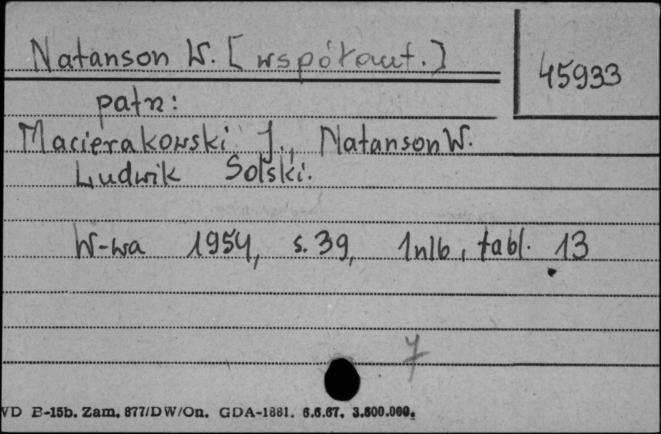 Natanson W. [współaut.]
45933
patrz:
Macierakowski J., Natanson W.
Ludwik Solski.
W-wa 1954, s. 39, 1nlb, tabl. 13
7
VD B-15b. Zam. 877/DW/On. GDA-1881. 6.6.67. 3.500.000.